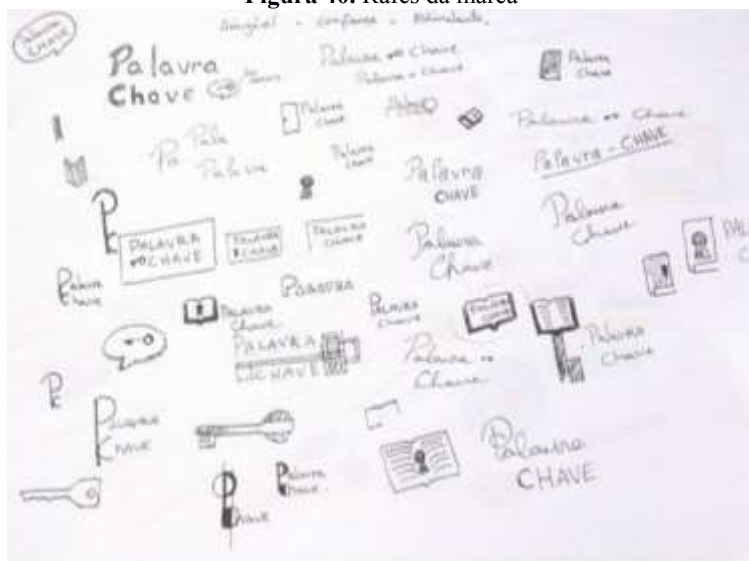 Figura 40. Rafes da marca
Palavra CHAVE
Amigável - confiança - Estimulante
Palavra
Chave
Palavra Chave
Palavra - Chave
Palavra
Chave
Palavra
Chave
Pa Pala
Palavra
Palavra
Chave
Palavra
CHAVE
Palavra Chave
Palavra - CHAVE
PALAVRA
CHAVE
PALAVRA
CHAVE
PALAVRA
CHAVE
Palavra
Chave
Palavra
Chave
Palavra
Chave
PALAVRA
Chave
PALAVRA
PALAVRA
CHAVE
PALAVRA
CHAVE
PALAVRA
CHAVE
Palavra
Chave
PALAVRA
CHAVE
Pk
PALAVRA
CHAVE
Palavra
CHAVE
Palavra
CHAVE